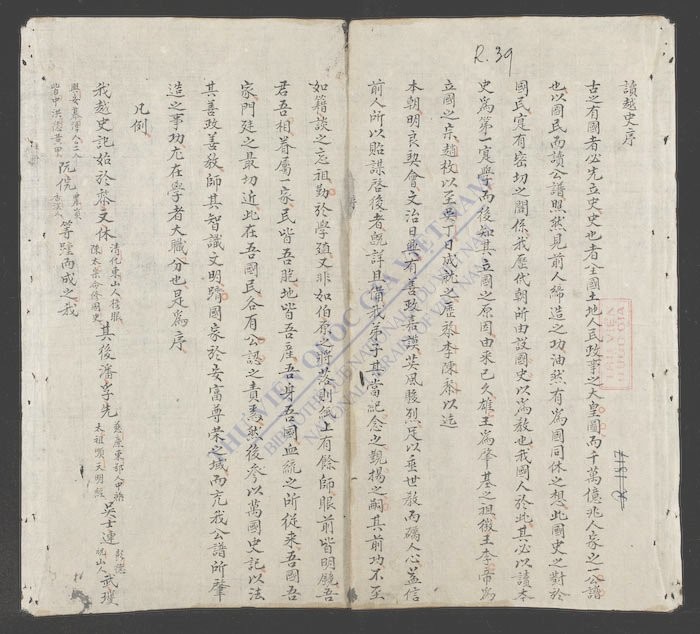 R. 39
讀越史序
古之有國者必先立史史也者全國土地人民政事之大皇圖而千萬億兆人家之一公譜
也以國民而讀公譜照然見前人締造之功油然有為國同休之想此國史之對於
國民寔有密切之關係我歷代朝所由設國史以為教也我國人於此其必以讀本
史為第一寔學而後知其立國之原因由來已久雄王為肇基之祖徵王李帝為
立國之宗趙枚以至吳丁日成就之歷黎李陳黎以迄
本朝明良契會文治日興有善政嘉謨英風駿烈足以垂世教而礪人心蓋信
前人所以貽謀啓後者既詳且備我弟子其當記念之覲揚之嗣其前功不至
如籍談之忘祖勤於學殖又非如伯原之將落則無上有餘師眼前皆明鏡吾
君吾相眷屬一家民皆吾胞地皆吾產吾身吾國血統之所從來吾國吾
家門廷之最切近此在吾國民各有公認之責焉然後參以萬國史記以法
其善政善教師其智識文明躋國家於安富尊榮之域而充我公譜所肇
造之事功尤在學者大職分也是為序
凡例
我越史記始於黎文休清化東山人 陳太宗命修國史其後潘孚先慈廉東鄂人 太祖順天明經吳士連彰德 人武瓊
阮侃等踵而成之我
R 1317
THU VIEN QUOC GIA VIETNAM
BIBLIOTHEQUE NATIONALE DU VIETNAM
NATIONAL LIBRARY OF VIETNAM